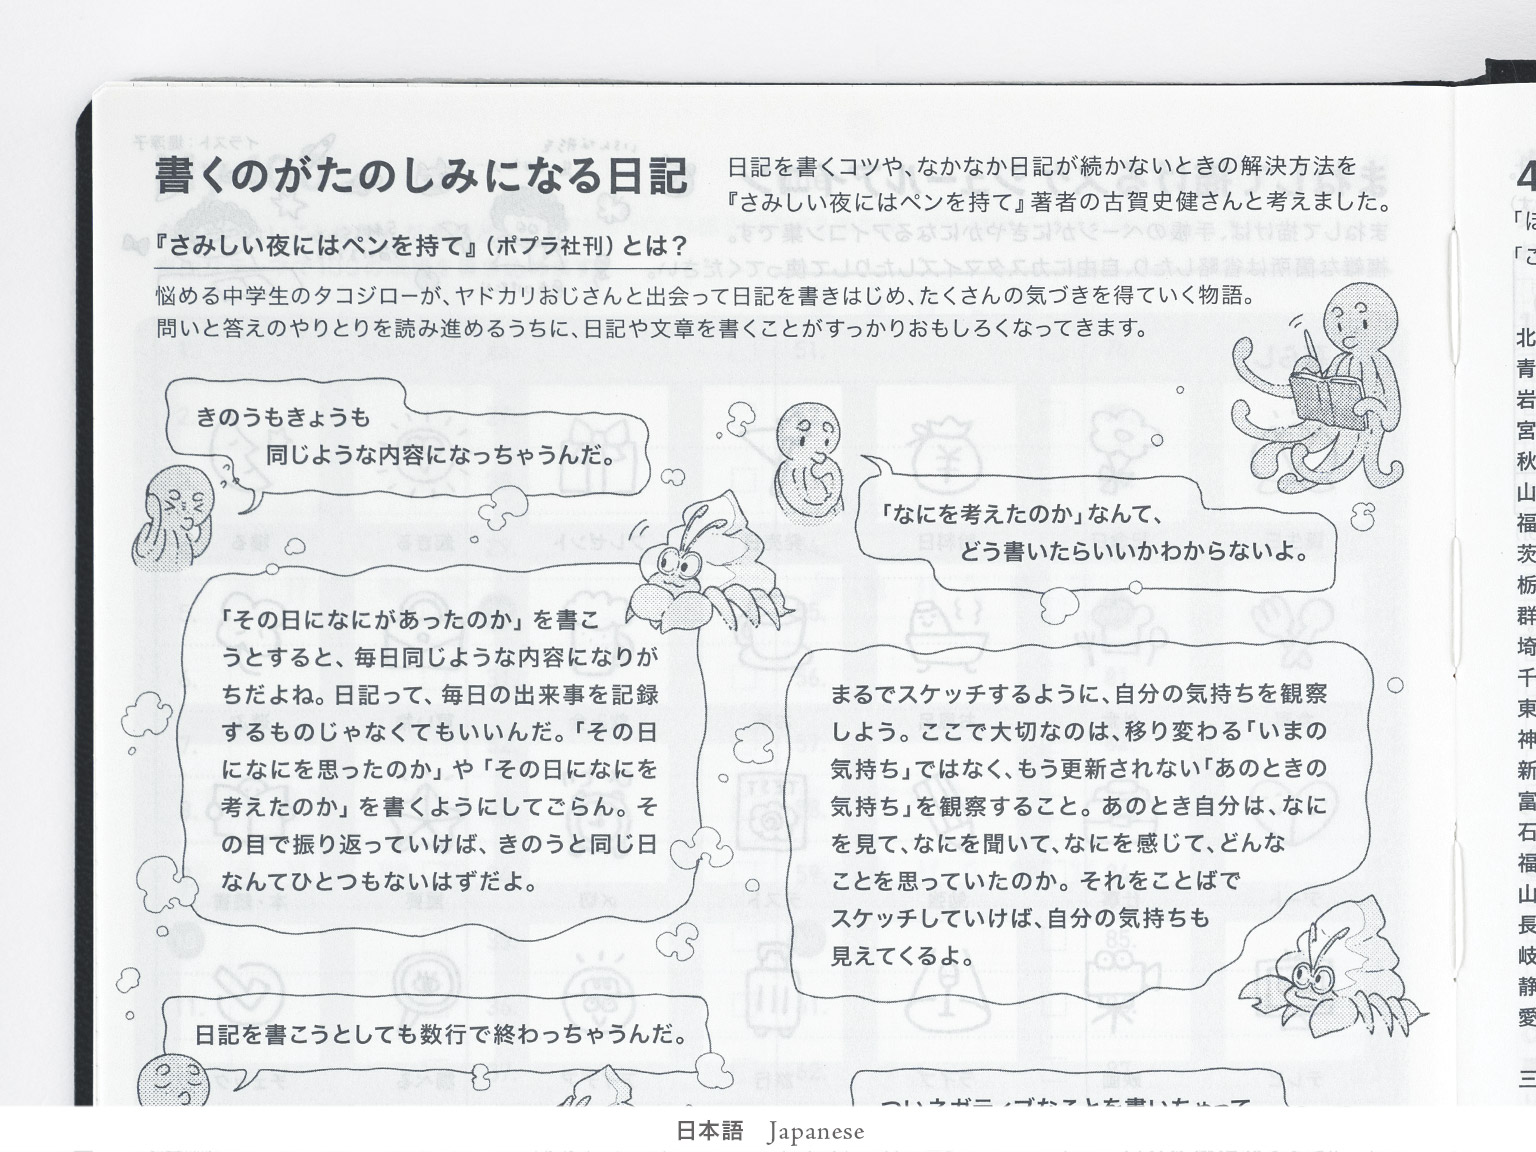 書くのがたのしみになる日記
日記を書くコツや、なかなか日記が続かないときの解決方法を
『さみしい夜にはペンを持て』著者の古賀史健さんと考えました。
『さみしい夜にはペンを持て』（ポプラ社刊）とは？
悩める中学生のタコジローが、ヤドカリおじさんと出会って日記を書きはじめ、たくさんの気づきを得ていく物語。
問いと答えのやりとりを読み進めるうちに、日記や文章を書くことがすっかりおもしろくなってきます。
きのうもきょうも
同じような内容になっちゃうんだ。
「その日になにがあったのか」を書こ
うとすると、毎日同じような内容になりが
ちだよね。日記って、毎日の出来事を記録
するものじゃなくてもいいんだ。「その日
になにを思ったのか」や「その日になにを
考えたのか」を書くようにしてごらん。そ
の目で振り返っていけば、きのうと同じ日
なんてひとつもないはずだよ。
「なにを考えたのか」なんて、
どう書いたらいいかわからないよ。
まるでスケッチするように、自分の気持ちを観察
しよう。ここで大切なのは、移り変わる「いまの
気持ち」ではなく、もう更新されない「あのときの
気持ち」を観察すること。あのとき自分は、なに
を見て、なにを聞いて、なにを感じて、どんな
ことを思っていたのか。それをことばで
スケッチしていけば、自分の気持ちも
見えてくるよ。
日記を書こうとしても数行で終わっちゃうんだ。
ついネガティブなことを書いちゃって
4
北
青
岩
宮
秋
山
福
茨
栃
群
埼
千
東
神
新
富
石
福
山
長
岐
静
愛
三
日本語 Japanese